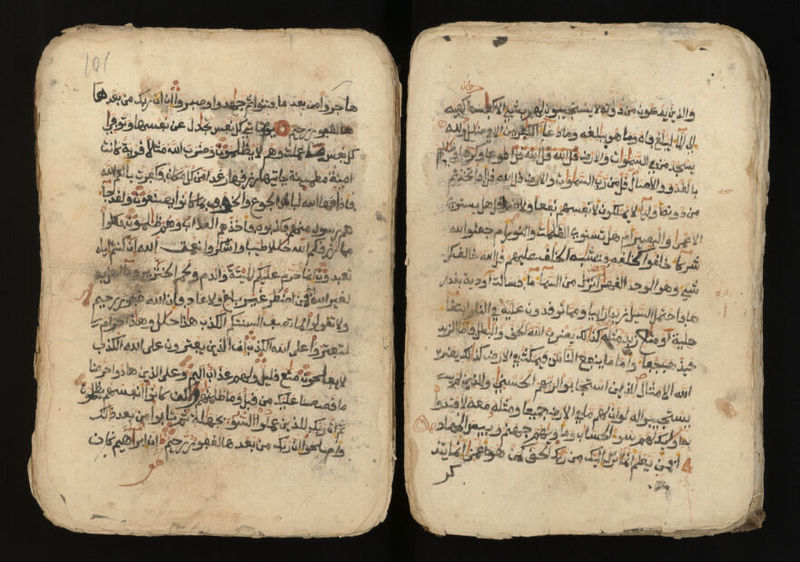 والذين يدعون من دونه لا يستجيبون لهم بشيء الا كباسط كفيه
الى الماء ليبلغ فاه وما هو ببالغه وما دعاء الكفرين الا في ضلل ولله
يسجد من في السموات والارض طوعا وكرها
بالغدو والاصال قل من رب السموات والارض قل الله قل افاتخذتم
من دونه اولياء لا يملكون لانفسهم نفعا ولا ضرا قل هل يستوي
الاعمى والبصير ام هل تستوي الظلمت والنور ام جعلوا لله
شركاء خلقوا كخلقه فتشبه الخلق عليهم قل الله خلق كل
شيء وهو الوحد القهر انزل من السماء ماء فسالت اودية بقدر
ها فاحتمل السيل زبدا رابيا ومما توقدون عليه في النار ابتغاء
حلية او متع زبد مثله كذلك يضرب الله الحق والبطل فاما الزبد
فيذهب جفاء واما ما ينفع الناس فيمكث في الارض كذلك يضرب
الله الامثال للذين استجابوا لربهم الحسنى والذين لم
يستجيبوا له لو ان لهم ما في الارض جميعا ومثله معه لافتدوا
به اوليك لهم سوء الحساب وماويهم جهنم وبيس المهاد
افمن يعلم انما انزل اليك من ربك الحق كمن هو اعمى انما يتذ
كر
101
هاجروا من بعد ما فتنوا ثم جهدوا وصبروا ان ربك من بعدها
لغفور رحيم يوم تاتي كل نفس تجدل عن نفسها وتوفى
كل نفس ما عملت وهم لا يظلمون وضرب الله مثلا قرية كانت
امنة مطمينة ياتيها رزقها رغدا من كل مكان فكفرت بانعم الله
فاذاقها الله لباس الجوع والخوف بما كانوا يصنعون ولقد جاء
هم رسول منهم فكذبوه فاخذهم العذاب وهم ظلمون فكلوا
مما رزقكم الله حللا طيبا واشكروا نعمت الله ان كنتم اياه
تعبدون انما حرم عليكم الميتة والدم ولحم الخنزير وما اهل به
لغير الله فمن اضطر غير باغ ولا عاد فان الله غفور رحيم
ولا تقولوا لما تصف السنتكم الكذب هذا حلل وهذا حرام
لتفتروا على الله الكذب ان الذين يفترون على الله الكذب
لا يفلحون متع قليل ولهم عذاب اليم وعلى الذين هادوا حرمنا
ما قصصنا عليك من قبل وما ظلمنهم ولكن كانوا انفسهم يظلمون
ثم ان ربك للذين عملوا السوء بجهلة ثم تابوا من بعد ذلك
واصلحوا ان ربك من بعدها لغفور رحيم ان ابراهيم كان